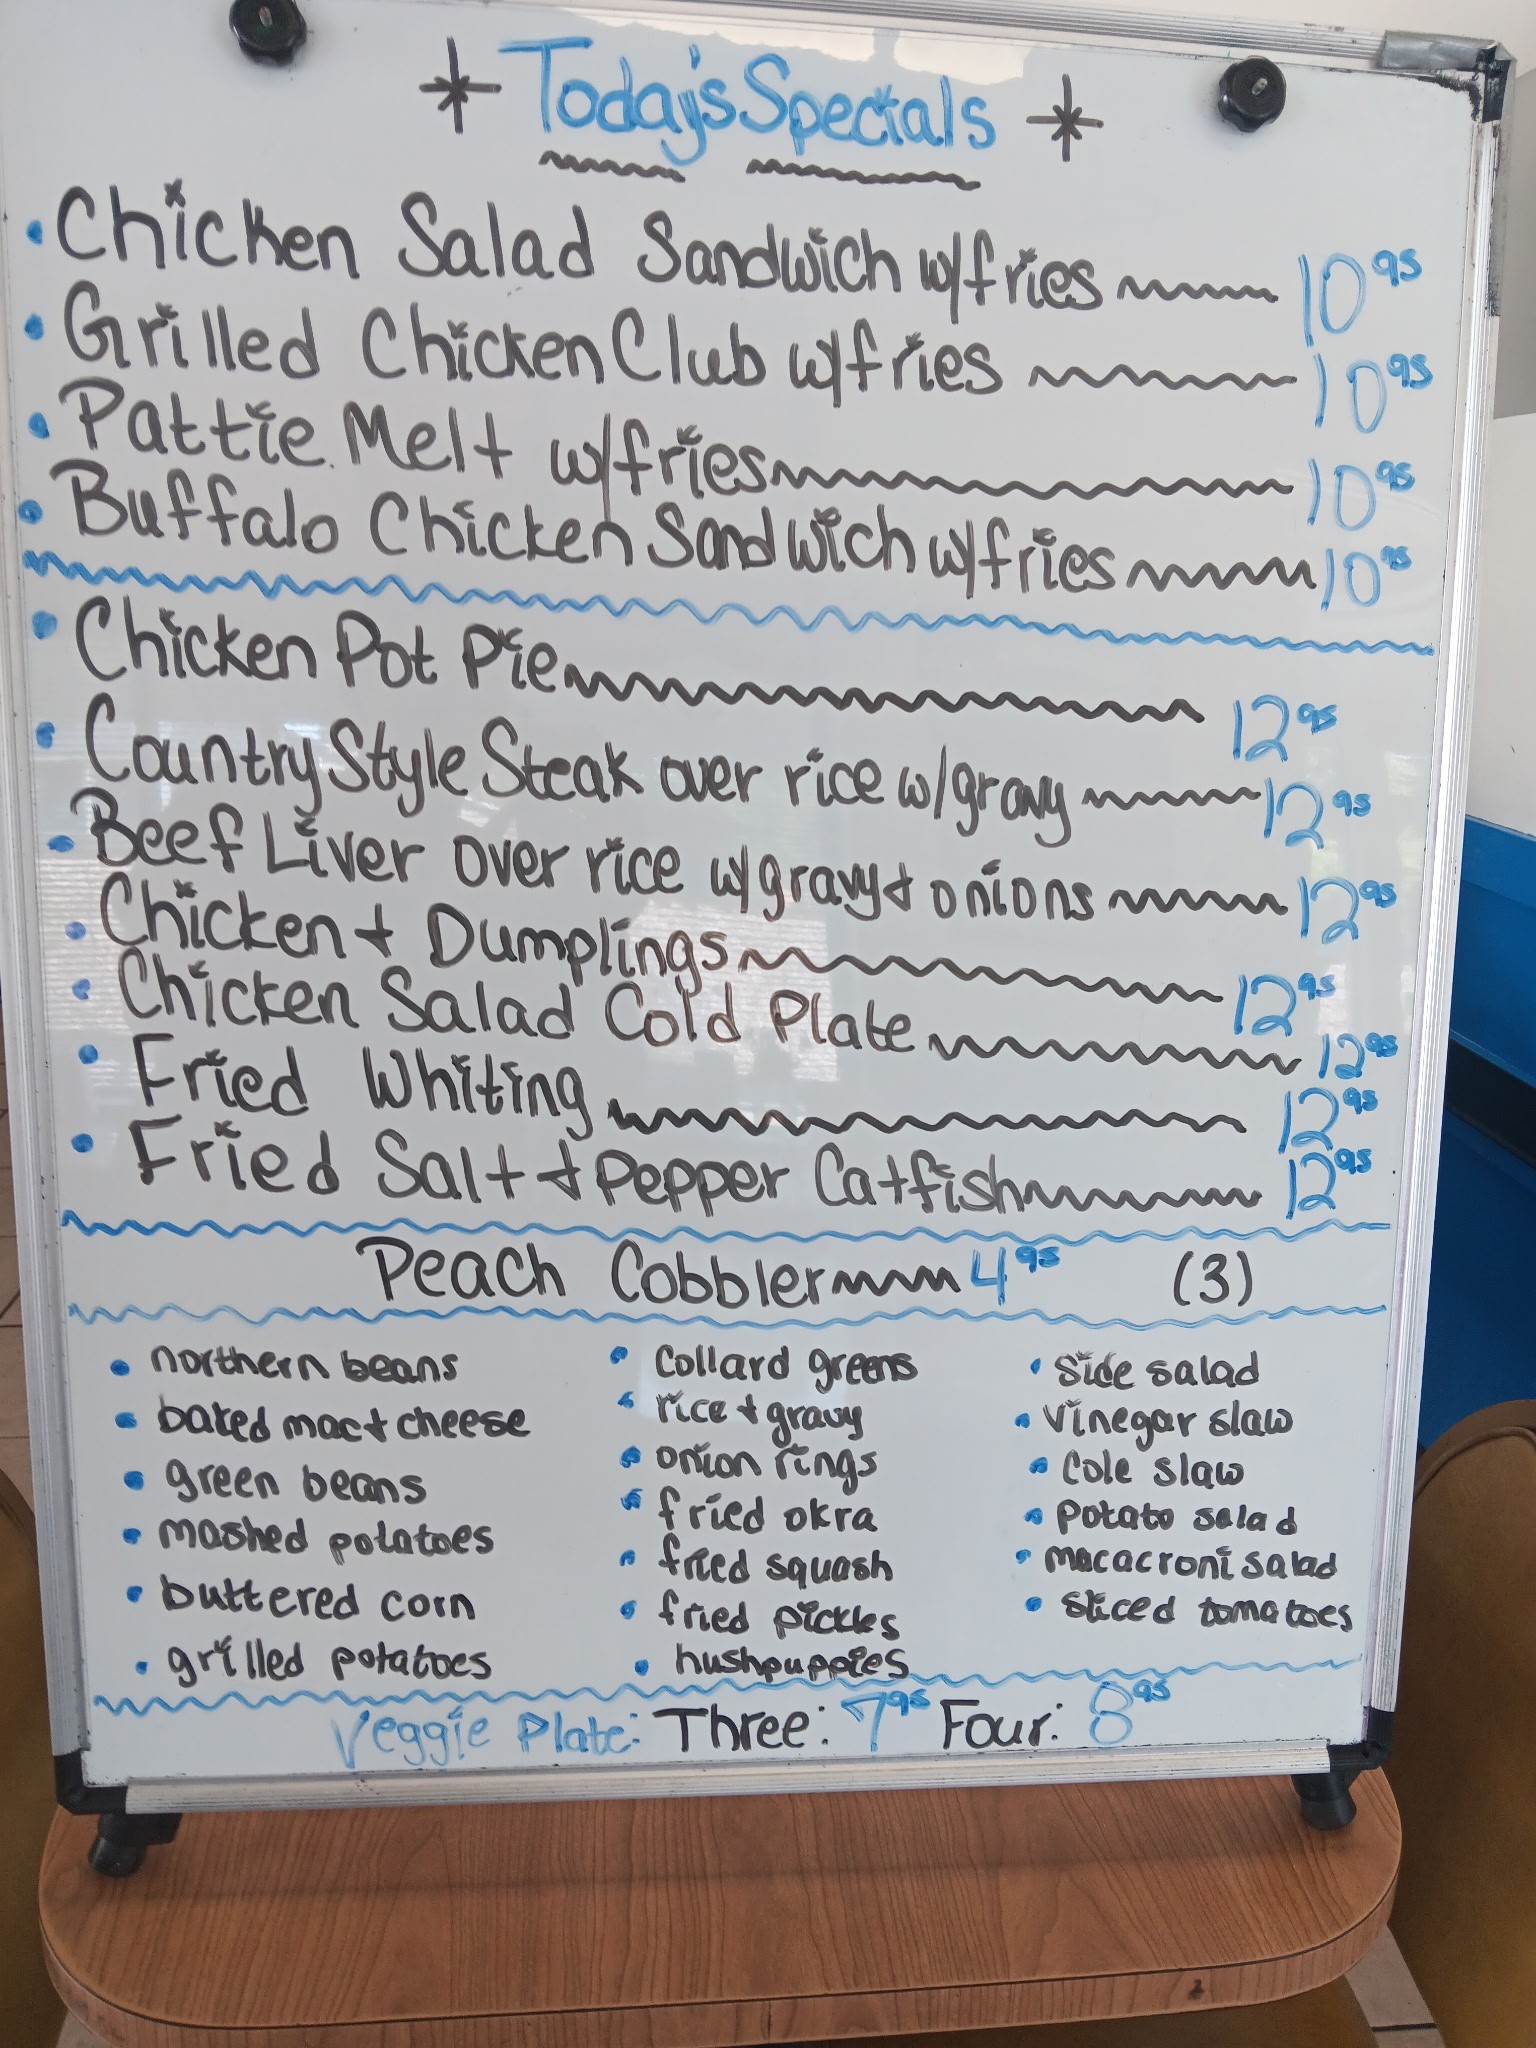 Today's Specials
• Chicken Salad Sandwich w/fries 10 95
• Grilled Chicken Club w/fries 10 95
• Pattie Melt w/fries 10 95
• Buffalo Chicken Sandwich w/fries 10 95
• Chicken Pot Pie 12 95
• Country Style Steak over rice w/gravy 12 95
• Beef Liver over rice w/gravy + onions 12 95
• Chicken + Dumplings 12 95
• Chicken Salad Cold Plate 12 95
• Fried Whiting 12 95
• Fried Salt + Pepper Catfish 12 95
Peach Cobbler 4 95 (3)
• northern beans
• baked mac + cheese
• green beans
• mashed potatoes
• buttered corn
• grilled potatoes
• collard greens
• rice + gravy
• onion rings
• fried okra
• fried squash
• fried pickles
• hushpuppies
• side salad
• vinegar slaw
• cole slaw
• potato salad
• macacroni salad
• sliced tomatoes
Veggie Plate: Three: 7 95 Four: 8 95